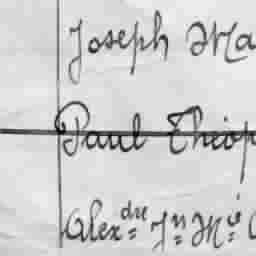 Joseph Ma
Paul Théop
Alex.dre Jn Mie